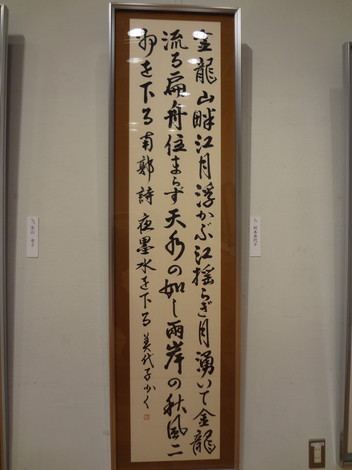 金龍山畔江月浮かぶ江揺らぎ月湧いて金龍
流る扁舟住まらず天水の如し兩岸の秋風二
州を下る 南郭詩 夜墨水を下る 美代子かく